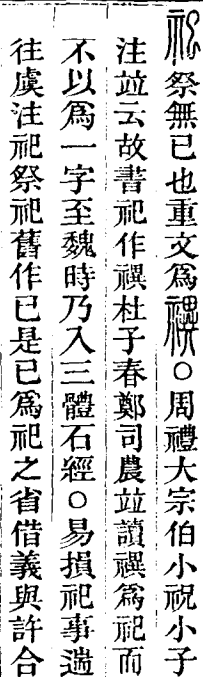 祀祭無已也重文爲禩○周禮大宗伯小祝小子
注竝云故書祀作禩杜子春鄭司農竝讀禩爲祀而
不以爲一字至魏時乃入三體石經○易損祀事遄
往虞注祀祭祀舊作巳是巳爲祀之省借義與許合